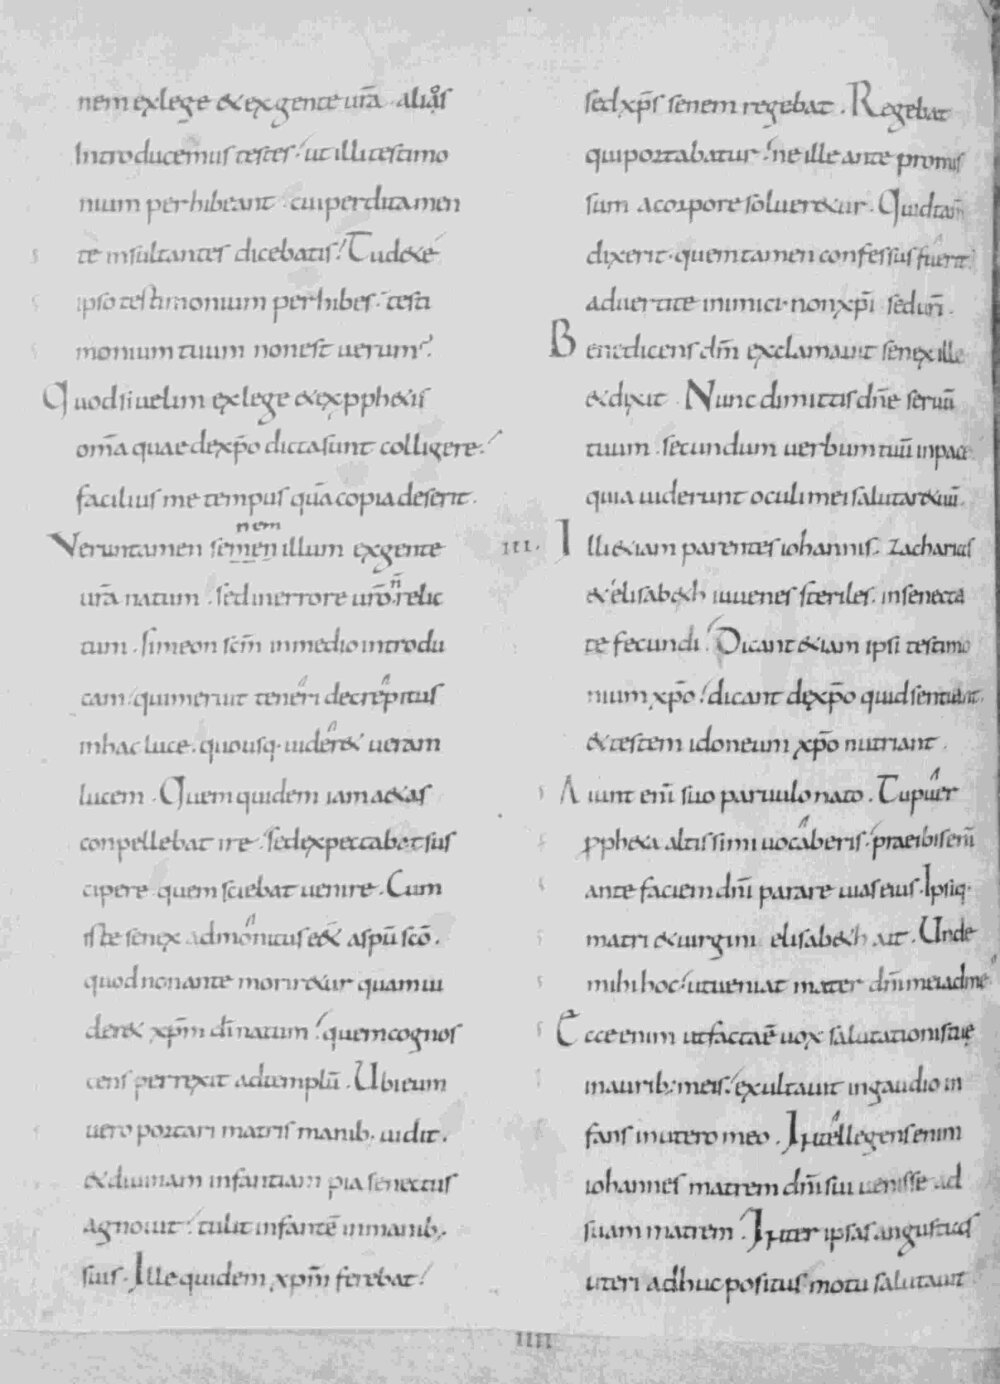 nem ex lege & ex gente urā aliås
Introducemus testes. ut illi testimo
nium perhibeant cui perdita men
te insultantes dicebatis. Tu de te
ipso testimonium perhibes. testi
monium tuum non est uerum.
Quod si uelim ex lege & ex pph&is
om̄a quae de xp̄o dicta sunt colligere.
facilius me tempus quā copia deserit.
nem
Veruntamen semen illum ex gente
n̄
urā natum. sed in errore urō relic
tum. simeon scm̄ in medio introdu
cam. qui meruit teneri decrepitus
in hac luce. quousq. uider& ueram
lucem. Quem quidem iam a&as
conpellebat ire. sed expectabat sus
cipere quem sciebat uenire. Cum
iste senex admonitus e& a spū scō.
quod non ante morir&ur quam ui
der& xp̄m dī natum. quem cognos
cens perrexit ad templū. Ubi eum
uero portari matris manib. uidit.
& diuinam infantiam pia senectus
agnouit. tulit infantē in manib;
suis. Ille quidem xp̄m ferebat.
sed xp̄s senem regebat. Regebat
qui portabatur. ne ille ante promis
sum a corpore solueretur. Quid tam̄
dixerit. quem tamen confessus fuerit
aduertite inimici non xp̄i sed urī.
Benedicens dm̄ exclamauit senex ille
& dixit. Nunc dimittis dn̄e seruū
tuum. secundum uerbum tuū in pace
quia uiderunt oculi mei salutare tuū.
III. Illi &iam parentes iohannis. zacharias
& elisab&h iuuenes steriles. in senecta
te fecundi. Dicant &iam ipsi testimo
nium xp̄o. dicant de xp̄o quid sentiant.
& testem idoneum xp̄o nutriant.
Aiunt enī suo paruulo nato. Tu puer
ppheta altissimi uocaberis. praeibis enī
ante faciem dnī parare uias eius. Ipsiq.
matri & uirgini elisab&h ait. Unde
mihi hoc. ut ueniat mater dn̄i mei ad me
Ecce enim ut facta ē uox salutationis tuę
in aurib; meis. exultauit in gaudio in
fans in utero meo. Intellegens enim
iohannes matrem dn̄i sui uenisse ad
suam matrem. Inter ipsas angustias
uteri adhuc positus motu salutauit
IIII